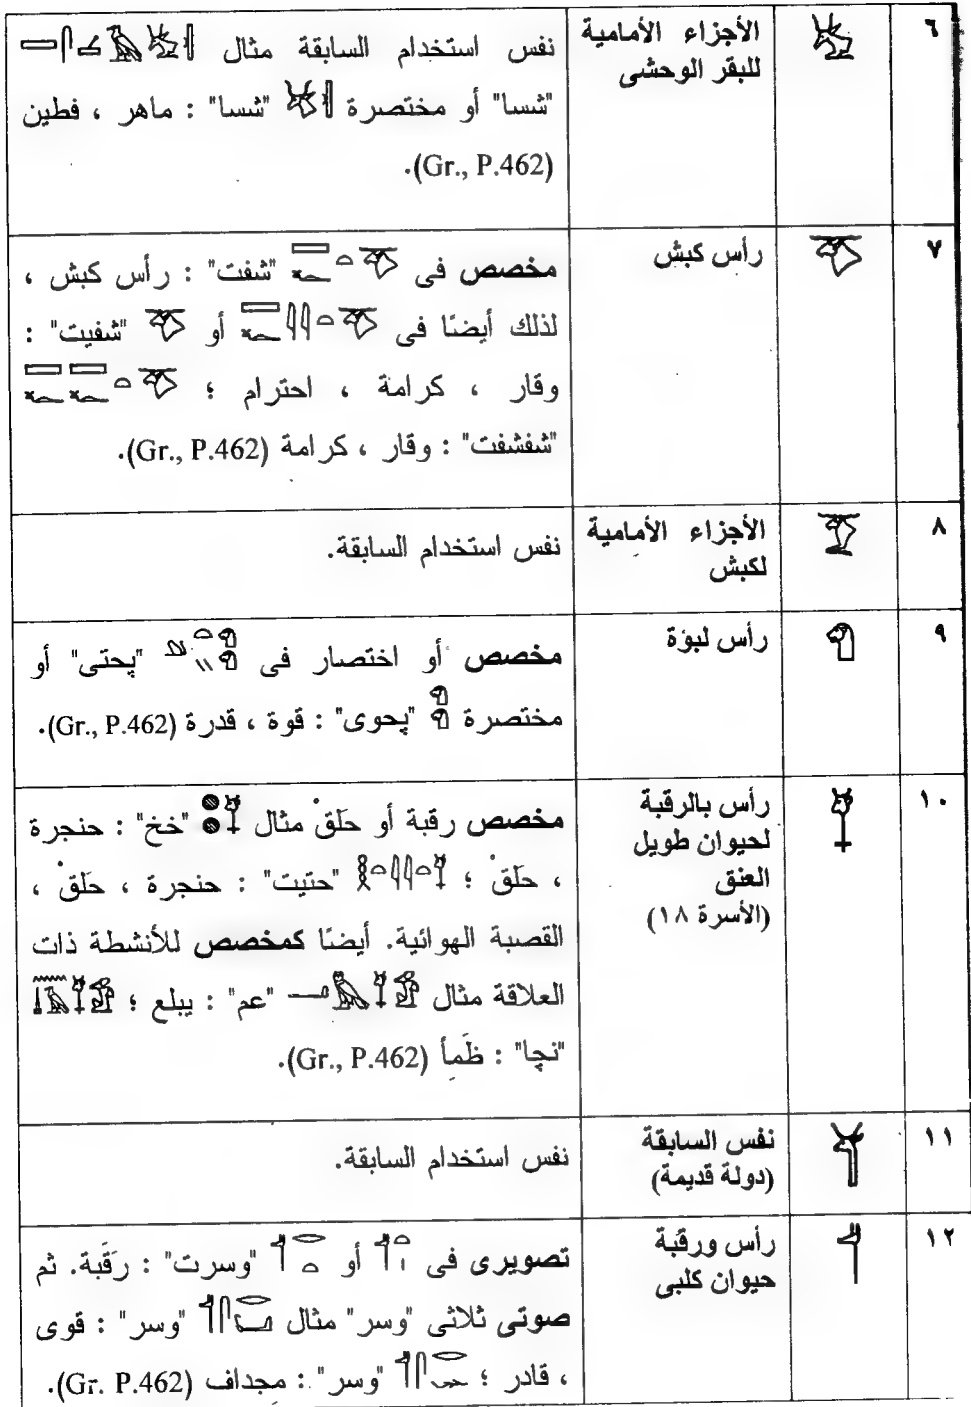 ٦
الأجزاء الأمامية
للبقر الوحشى
نفس استخدام السابقة مثال
"شسا" أو مختصرة "شسا" : ماهر ، فطين
(Gr., P.462).
٧
رأس كبش
مخصص فى "شفت" : رأس كبش ،
لذلك أيضًا فى أو "شفيت" :
وقار ، كرامة ، احترام ؛
"شفشفت" : وقار ، كرامة (Gr., P.462).
٨
الأجزاء الأمامية
لكبش
نفس استخدام السابقة.
٩
رأس لبؤة
مخصص أو اختصار فى "پحتى" أو
مختصرة "پحوى" : قوة ، قدرة (Gr., P.462).
١٠
رأس بالرقبة
لحيوان طويل
العنق
(الأسرة ١٨)
مخصص رقبة أو حَلقْ مثال "خخ" : حنجرة
، حَلقْ ؛ "حتيت" : حنجرة ، حَلقْ ،
القصبة الهوائية. أيضًا كمخصص للأنشطة ذات
العلاقة مثال "عم" : يبلع ؛
"نچا" : ظَمأ (Gr., P.462).
١١
نفس السابقة
(دولة قديمة)
نفس استخدام السابقة.
١٢
رأس ورقبة
حيوان كلبى
تصويرى فى أو "وسرت" : رَقَبة. ثم
صوتى ثلاثى "وسر" مثال "وسر" : قوى
، قادر ؛ "وسر" : مجداف (Gr. P.462).